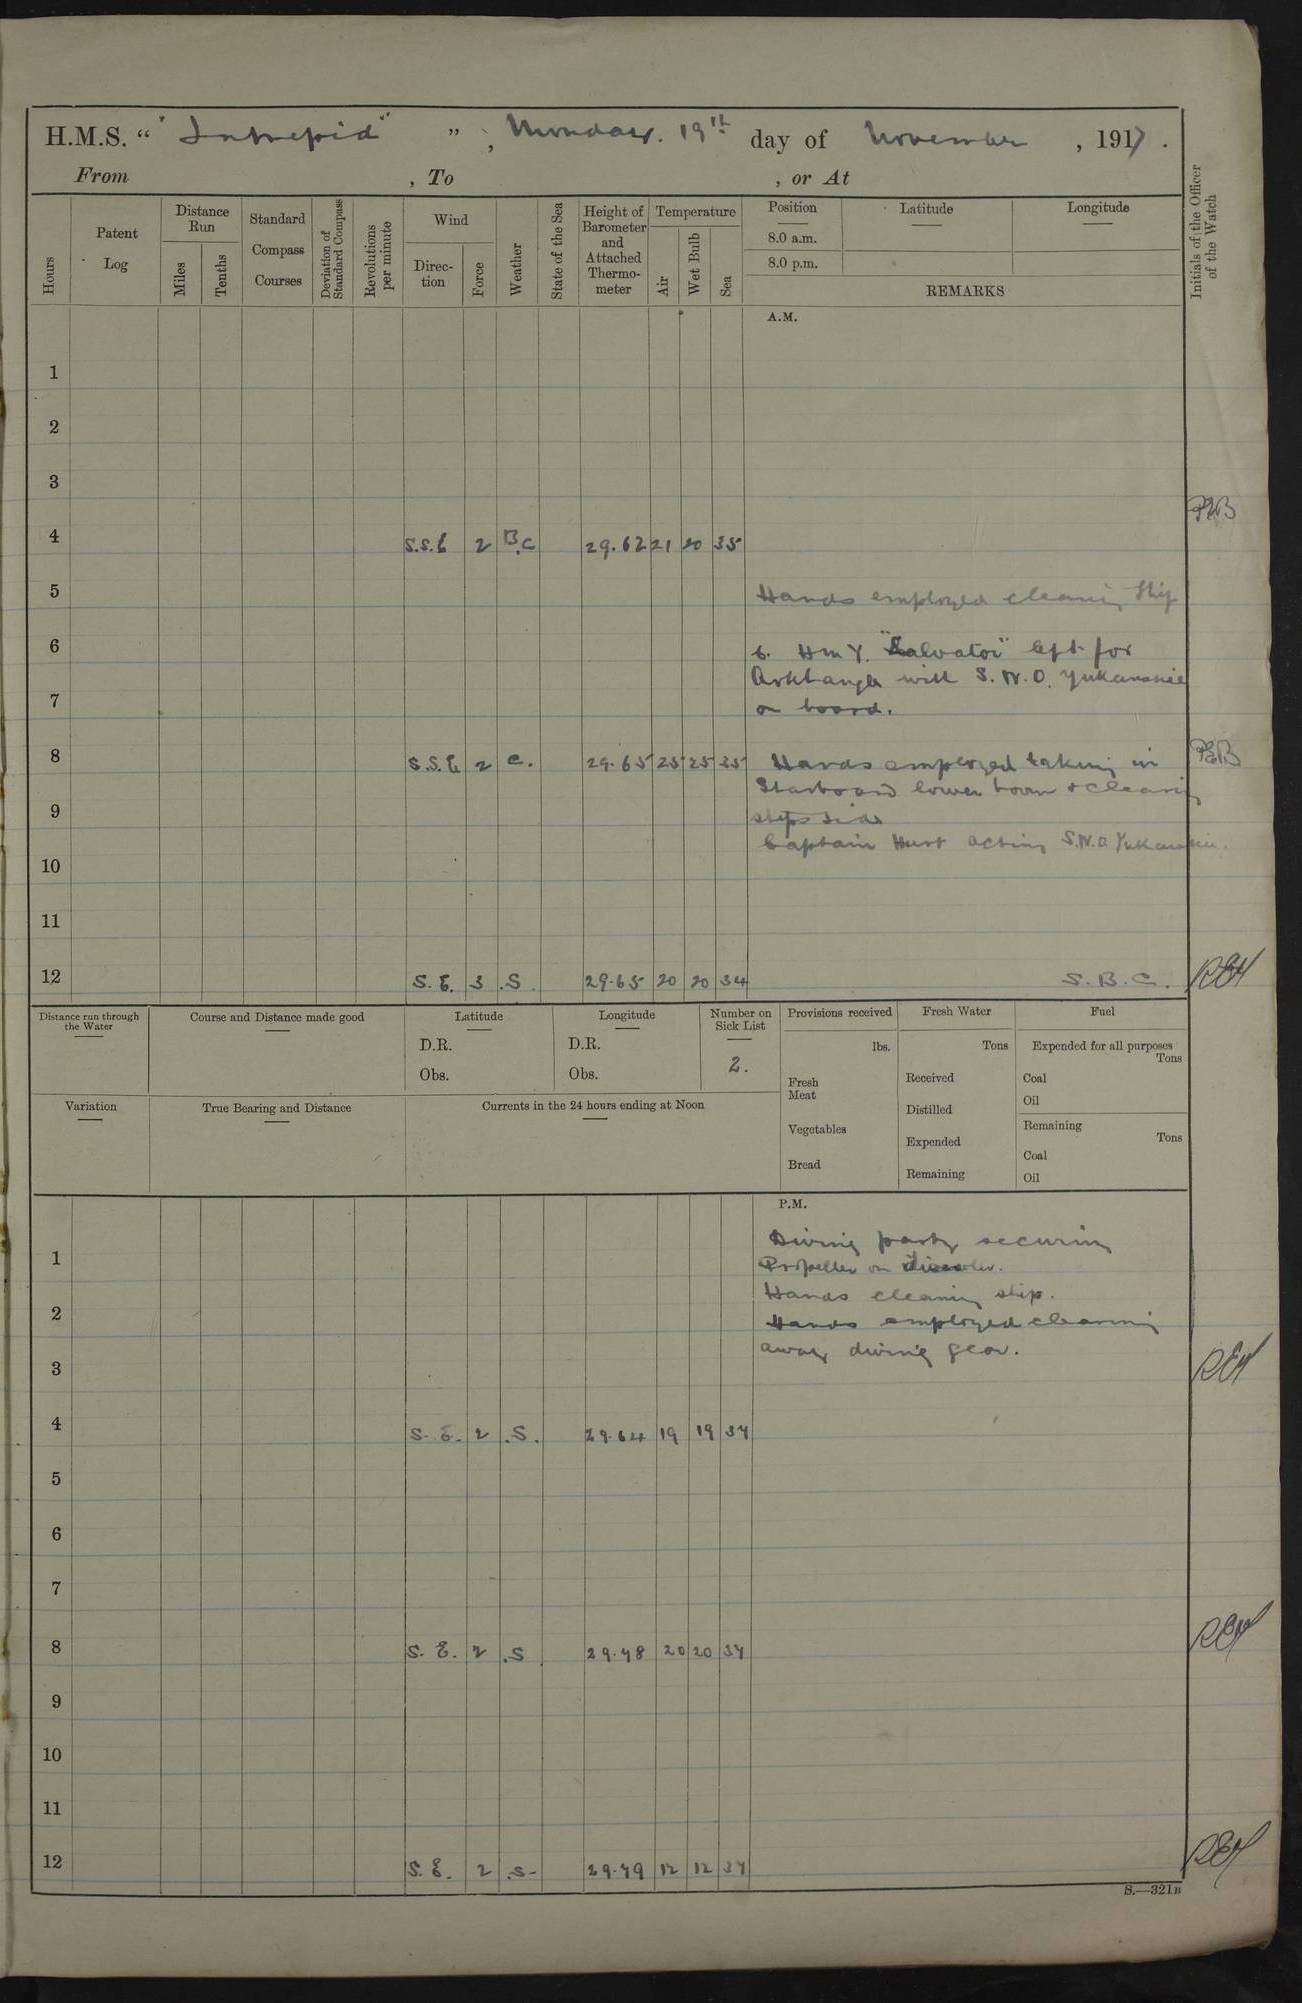 H.M.S. “ "Intrepid" ” , Monday. 19th day of November , 1917 .
From , To , or At
Hours
Patent Log
Distance Run
Miles
Tenths
Standard Compass Courses
Deviation of Standard Compass
Revolutions per minute
Wind
Direction
Force
Weather
State of the Sea
Height of Barometer and Attached Thermometer
Temperature
Air
Wet Bulb
Sea
Position
8.0 a.m.
8.0 p.m.
Latitude
Longitude
REMARKS
Initials of the Officer of the Watch
A.M.
1
2
3
4 S.S.E 2 B.C 29.62 21 20 35
5 Hands employed cleaning ship
6 6. H M Y. "Salvator" left for
Arkhangel with S.N.O. Yukanskie
7 on board.
8 S.S.E 2 C. 29.65 25 25 35 Hands employed taking in
Starboard lower boom & cleaning
9 ships side
Captain Hurt acting S.N.O. Yukanskie.
10
11
12 S.E. 3 .S. 29.65 20 20 34 S.B.C. REH
Distance run through the Water
Course and Distance made good
Latitude
D.R.
Obs.
Longitude
D.R.
Obs.
Number on Sick List
2.
Provisions received
lbs.
Fresh Meat
Vegetables
Bread
Fresh Water
Tons
Received
Distilled
Expended
Remaining
Fuel
Expended for all purposes
Tons
Coal
Oil
Remaining
Tons
Coal
Oil
Variation
True Bearing and Distance
Currents in the 24 hours ending at Noon
P.M.
Diving party securing
1 Propeller on
Hands cleaning ship.
2 Hands employed clearing
away diving gear.
3 REH
4 S.E. 2 .S. 29.64 19 19 34
5
6
7
8 S.E. 2 .S. 29.48 20 20 34 REH
9
10
11
12 S.E. 2 .S- 29.49 12 12 34 REH
S.—321B